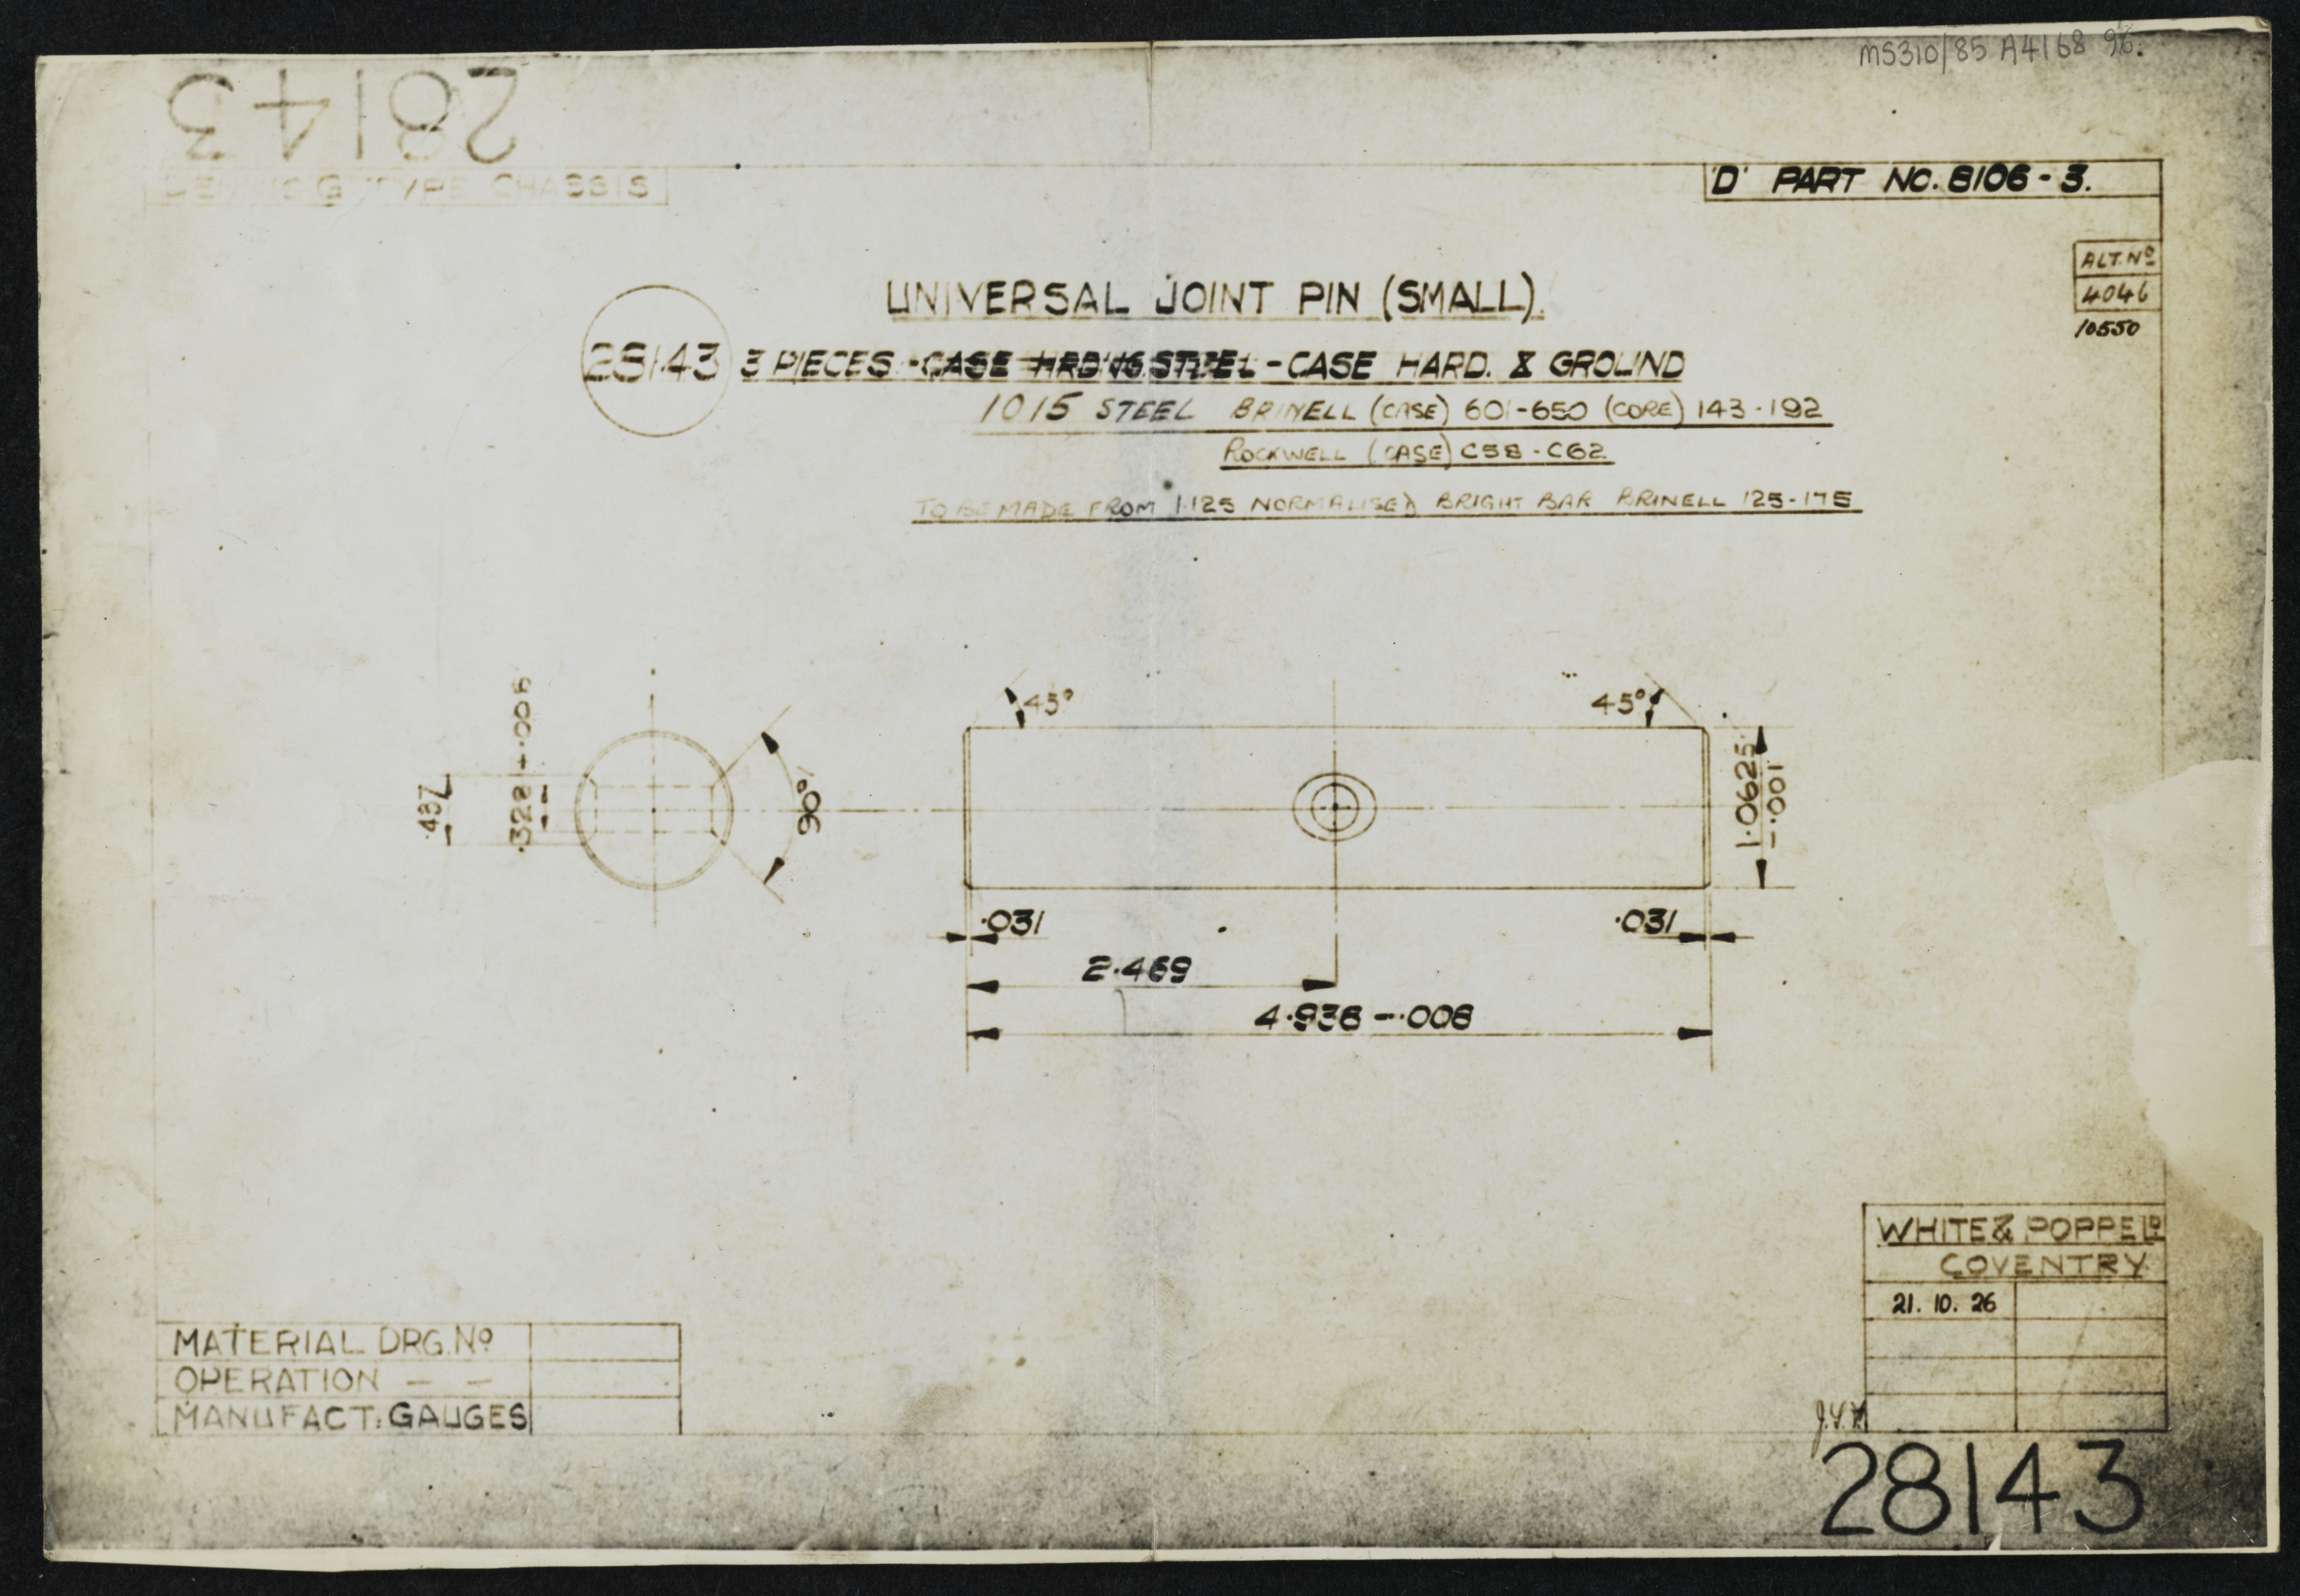 MS310/85 A4168 96.
28143
G TYPE CHASSIS
'D' PART NO. 8106-3.
ALT. Nº
4046
10550
UNIVERSAL JOINT PIN (SMALL).
28143 3 PIECES - CASE HRD'NG STEEL - CASE HARD. & GROUND
1015 STEEL BRINELL (CASE) 601-650 (CORE) 143-192
ROCKWELL (CASE) C58-C62
TO BE MADE FROM 1.125 NORMALISED BRIGHT BAR BRINELL 125-175
45°
45°
.437
90°
1.0625
-.001
.031
.031
2.469
4.938 -.008
WHITE & POPPE Lᴰ
COVENTRY.
21. 10. 26
MATERIAL DRG. Nº
OPERATION — —
MANUFACT: GAUGES
28143